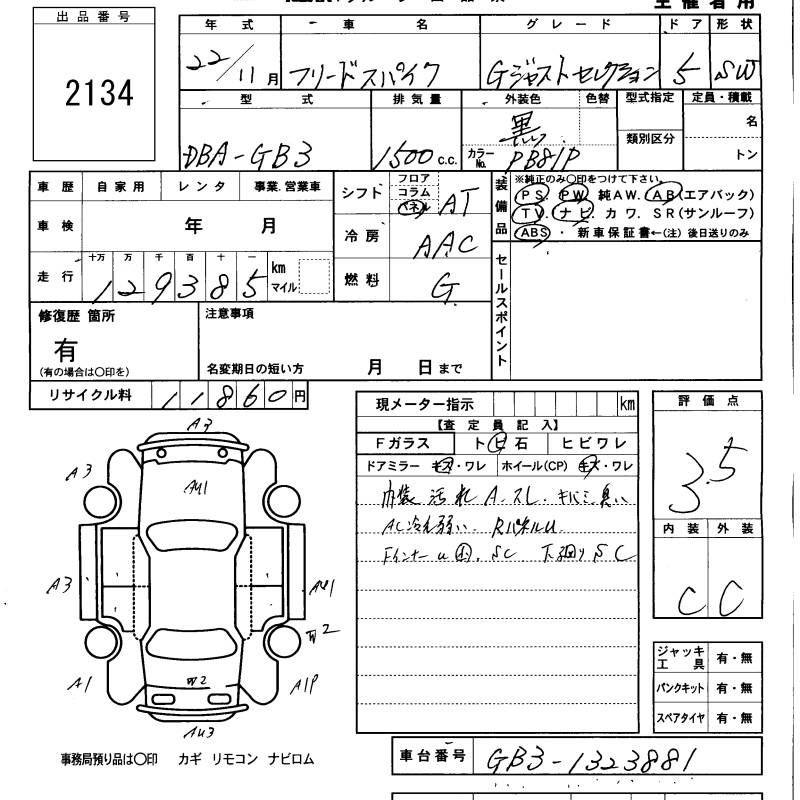 主催者用
出品番号
2134
年式 車名 グレード ドア 形状
22/11月 フリードスパイク Gジャストセレクション 5 SW
型式 排気量 外装色 色替 型式指定 定員・積載
DBA-GB3 1500 c.c. 黒 カラーNo. PB81P 類別区分 名 トン
車歴 自家用 レンタ 事業.営業車
車検 年 月
走行 十万 万 千 百 十 一 km マイル
129385
シフト フロア コラム パネル AT
冷房 AAC
燃料 G
装備品 ※純正のみ〇印をつけて下さい。
PS. PW 純AW. AB(エアバック)
TV. ナビ. カワ. SR(サンルーフ)
ABS ・ 新車保証書←(注) 後日送りのみ
セールスポイント
修復歴 箇所
有
(有の場合は〇印を)
注意事項
名変期日の短い方 月 日まで
リサイクル料 11860円
現メーター指示 km
【査定員記入】
Fガラス トビ石 ヒビワレ
ドアミラー キズ・ワレ ホイール(CP) キズ・ワレ
内装 汚れ A.スレ. キバミ 臭い
AC冷え弱い. RパネルU
Fインナーu SC 下廻りSC
評価点
3.5
内装 外装
C C
A3
A3
AU1
A3
AU1
W2
A1
W2
A1P
AU3
ジャッキ工具 有・無
パンクキット 有・無
スペアタイヤ 有・無
事務局預り品は〇印 カギ リモコン ナビロム
車台番号 GB3-1323881